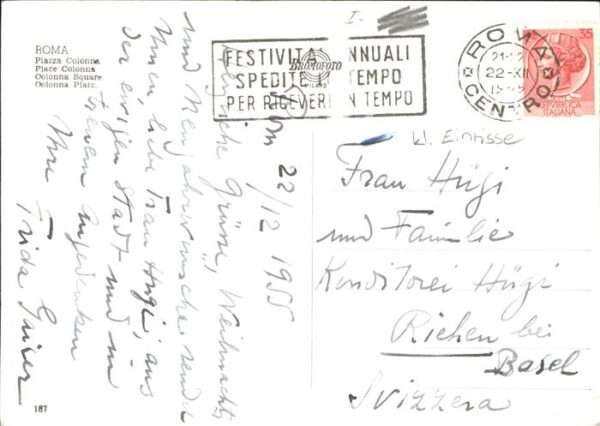 ROMA
Piazza Colonna
Place Colonna
Colonna Square
Colonna Platz.
I-
FESTIVITA ANNUALI
SPEDITE TEMPO
PER RICEVERE IN TEMPO
BROMOFOTO
ROMA
22-XII
CENTRO
35
ITALIANE
Rom 22/12 1955
Herzliche Grüsse, Weihnachts
und Neujahrwünsche sendet
Ihnen, liebe Frau Hügi, aus
der ewigen Stadt und in
treuem Angedenken
Ihre Frida
Frau Hügi
und Familie
Konditorei Hügi
Riehen bei
Basel
Svizzera
187